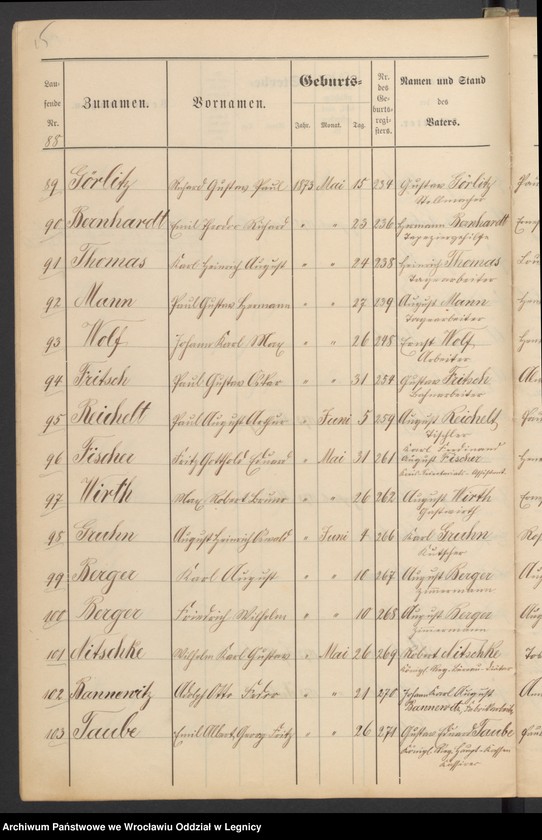 Lau-
fende
Nr.
88
Zunamen.
Vornamen.
Geburts-
Jahr. Monat. Tag.
Nr.
des
Ge-
burts-
regi-
sters.
Namen und Stand
des
Vaters.
89 Görlitz Richard Gustav Paul 1873 Mai 15 234 Gustav Görlitz
Stellmacher
90 Bernhardt Emil Theodor Richard " " 23 236 Hermann Bernhardt
Tapeziergehilfe
91 Thomas Karl Heinrich August " " 24 238 Heinrich Thomas
Tagearbeiter
92 Mann Paul Gustav Hermann " " 27 239 August Mann
Tagearbeiter
93 Wolf Johann Karl Max " " 26 248 Ernst Wolf
Arbeiter
94 Fritsch Paul Gustav Oskar " " 31 254 Gustav Fritsch
Lohnarbeiter
95 Reichelt Paul August Arthur " Juni 5 259 August Reichelt
Tischler
96 Fischer Fritz Gotthold Eduard " Mai 31 261 Karl Ferdinand
August Fischer
97 Wirth Max Robert Bruno " " 26 262 August Wirth
Gastwirth
98 Gruhn August Heinrich Oswald " Juni 4 266 Karl Gruhn
Kutscher
99 Berger Karl August " " 10 267 August Berger
Zimmermann
100 Berger Friedrich Wilhelm " " 10 268 August Berger
Zimmermann
101 Nitschke Wilhelm Karl Gustav " Mai 26 269 Robert Nitschke
Königl. Reg.
102 Bannewitz Adolph Otto Fedor " " 21 270 Johann Karl August
Bannewitz,
103 Taube Emil Albert Georg Fritz " " 26 271 Gustav Eduard Taube
Königl. Reg. Haupt-Kassen
Kassirer
Archiwum Państwowe we Wrocławiu Oddział w Legnicy